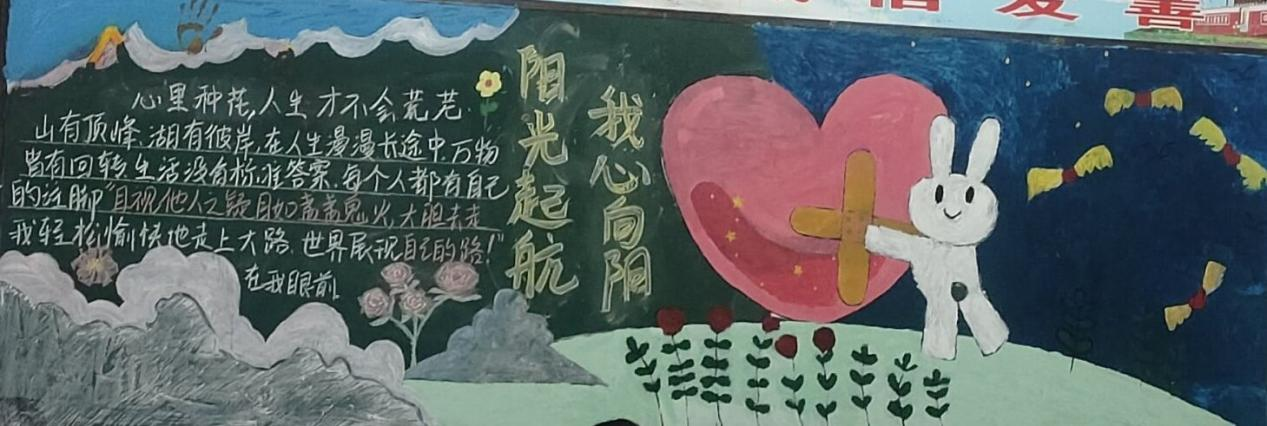 信 爱 善
心里种花，人生才不会荒芜
山有顶峰，湖有彼岸，在人生漫漫长途中，万物
皆有回转，生活没有标准答案，每个人都有自己
的注脚"自视他人之疑目如盏盏鬼火，大胆去走
我轻松愉快地走上大路，世界展现自己的路！"
在我眼前
阳光起航
我心向阳